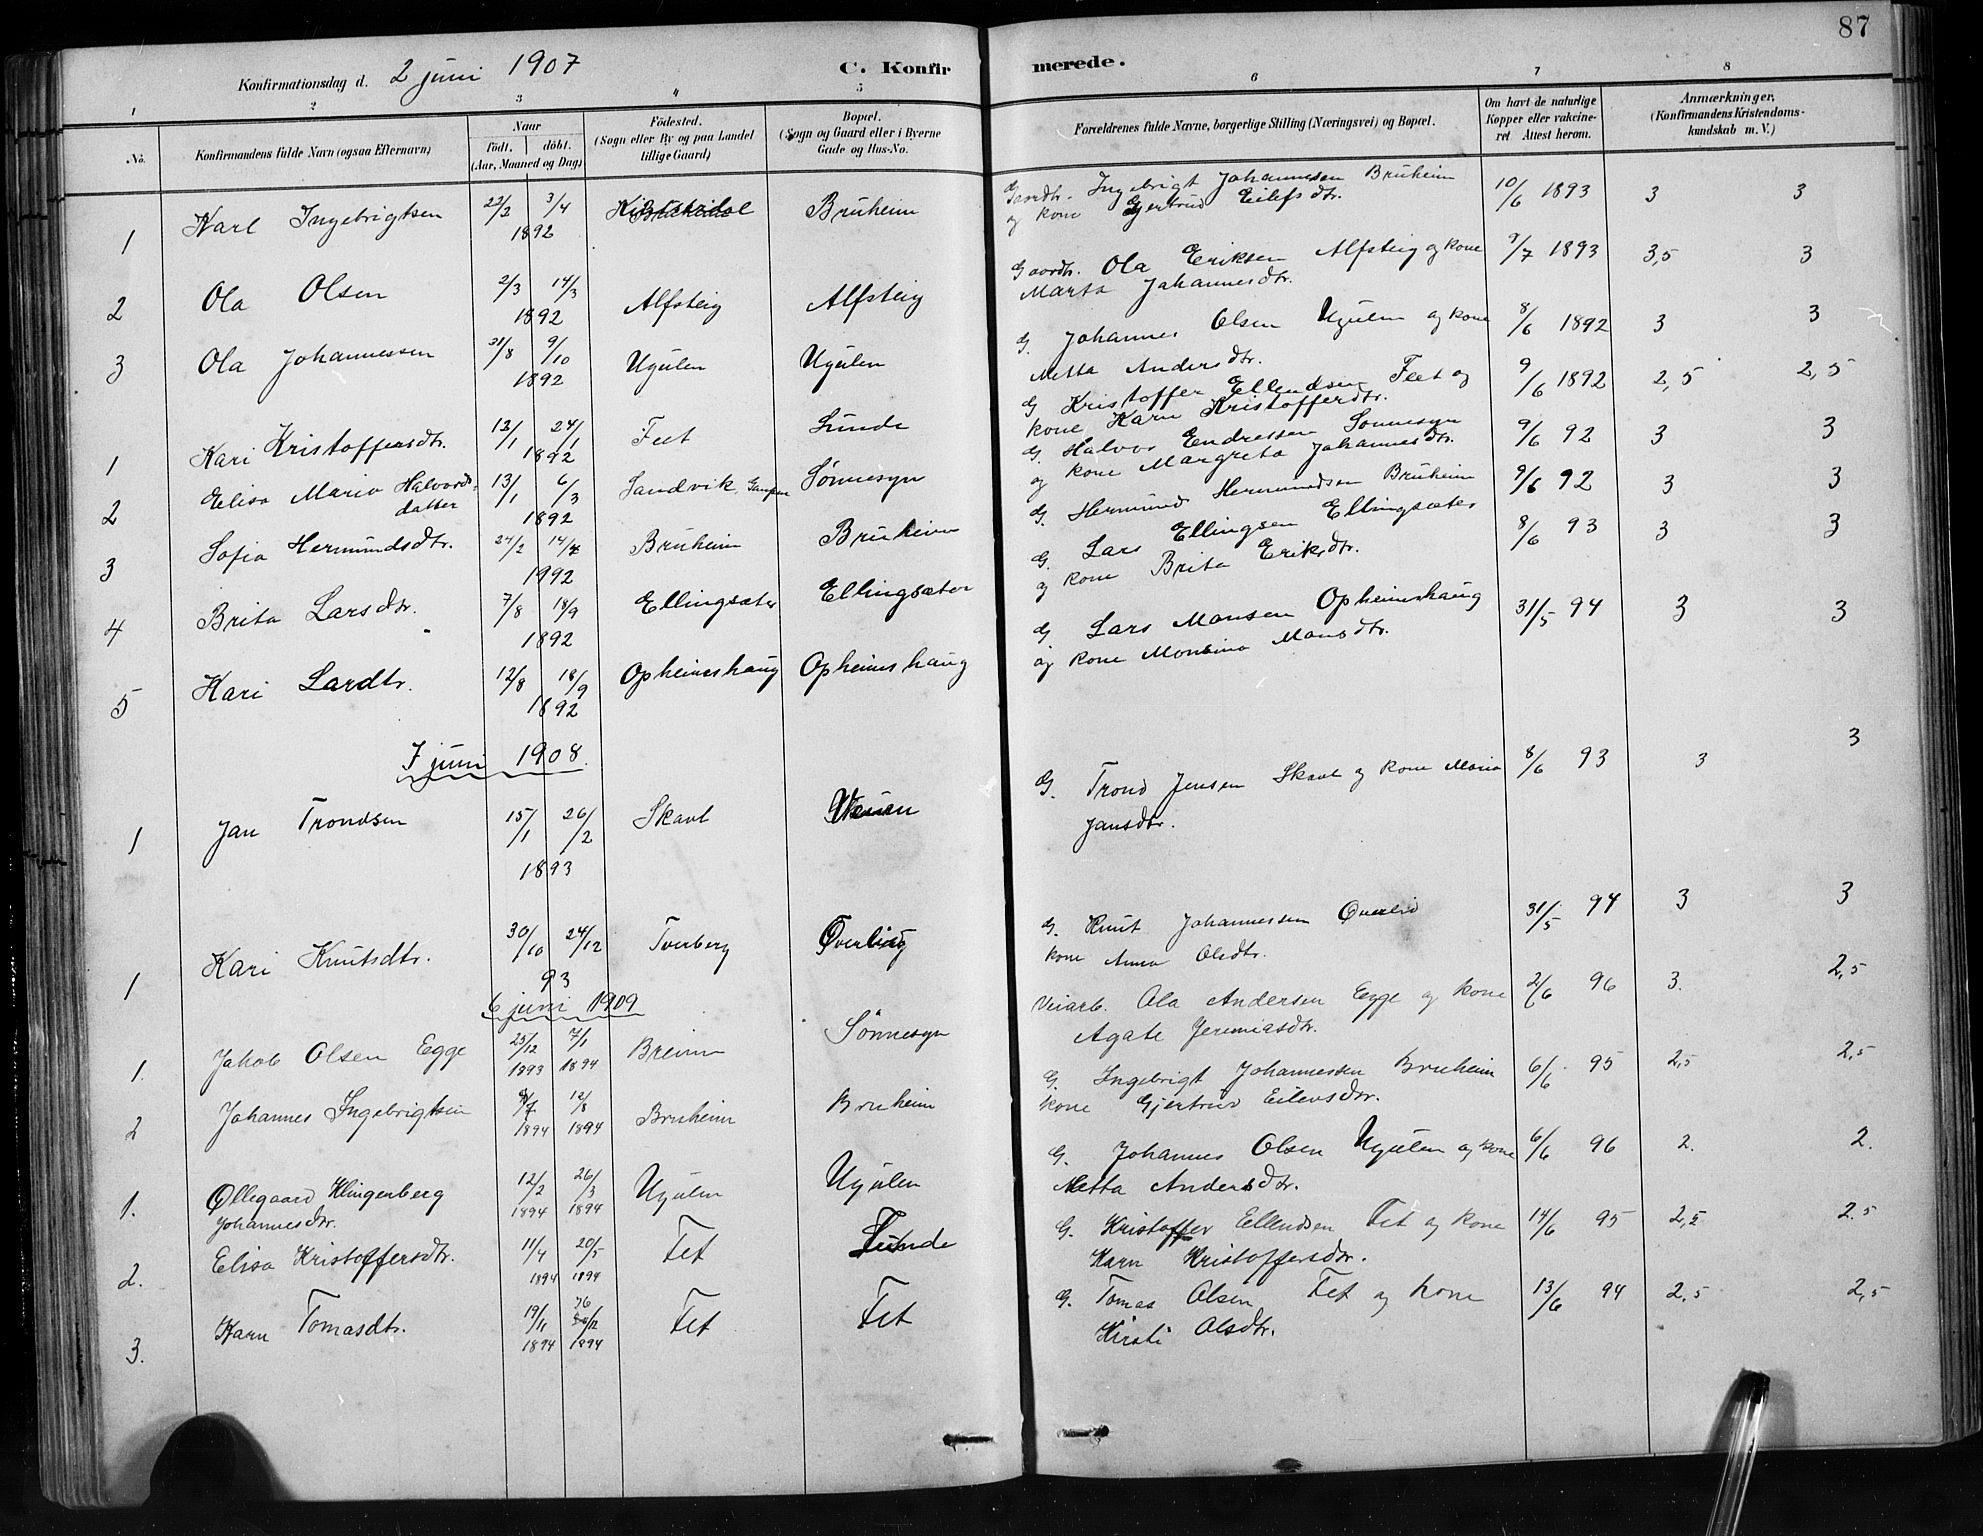 87
Konfirmationsdag d. 2 juni 1907
C. Konfirmerede.
1 2 3 4 5 6 7 8
No. Konfirmandens fulde Navn (ogsaa Efternavn) Naar født. døbt. (Aar, Maaned og Dag) Fødested. (Sogn eller By og paa Landet tillige Gaard) Bopæl. (Sogn og Gaard eller i Byerne Gade og Hus-No. Forældrenes fulde Navne, borgerlige Stilling (Næringsvei) og Bopæl. Om havt de naturlige Kopper eller vakcineret Attest herom. Anmærkninger. (Konfirmandens Kristendomskundskab m. V.)
1 Karl Ingebrigtsen 22/2 3/4 1892 Bruheim Gaardbr. Ingebrigt Johannesen Bruheim og kone Gjertrud Eilefsdtr. 10/6 1893 3 3
2 Ola Olsen 2/3 14/3 1892 Alfsteig Alfsteig Gaardbr. Ola Eriksen Alfsteig og kone Marta Johannesdtr. 9/7 1893 3,5 3
3 Ola Johannessen 31/8 9/10 1892 Ugulen Ugulen G. Johannes Olsen Ugulen og kone Metta Andersdtr. 8/6 1892 3 3
1 Kari Kristoffersdtr. 13/1 24/1 1892 Feet Lunde G Kristoffer Ellendsen Feet og kone Karn Kristofferdtr. 9/6 1892 2,5 2,5
2 Elisa Maria Halvordsdatter 13/1 6/3 1892 Sandvik, Sønnesyn G. Halvor Endressen Sønnesyn og kone Margreta Johannesdtr. 9/6 92 3 3
3 Sofia Hermundsdtr. 24/2 14/4 1892 Bruheim Bruheim G. Hermund Hermundsen Bruheim 9/6 92 3 3
4 Brita Larsdtr. 7/8 18/9 1892 Ellingsæter Ellingsæter G. Lars Ellingsen Ellingsæter og kone Brita Eriksdtr. 8/6 93 3 3
5 Kari Lardtr. 12/8 18/9 1892 Opheimshaug Opheimshaug G Lars Monsen Opheimshaug og kone Monsina Monsdtr. 31/5 94 3 3
7 juni 1908.
1 Jan Trondsen 15/1 26/2 1893 Skavl G. Trond Jensen Skavl og kone Maria Jansdtr. 8/6 93 3 3
1 Kari Knutsdtr. 30/10 24/12 93 Tverberg Øverlid G. Knut Johannessen Øverlid kone Anna Olsdtr. 31/5 94 3 3
6 juni 1909
1. Jakob Olsen Egge 25/12 1893 7/1 1894 Breum Sønnesyn Veiarb. Ola Andersen Egge og kone Agate Jeremiasdtr. 2/6 96 3. 2,5
2 Johannes Ingebrigtsen 8/7 1894 12/8 1894 Bruheim Bruheim G. Ingebrigt Johannessen Bruheim kone Gjertrud Eilevsdtr. 6/6 95 2,5 2,5
1. Øllegaard Klingenberg Johannesdtr. 12/2 1894 26/3 1894 Ugulen Ugulen G. Johannes Olsen Ugulen og kone Metta Andersdtr. 6/6 96 2. 2.
2. Elisa Kristoffersdtr. 11/4 1894 20/5 1894 Fet Lunde G. Kristoffer Ellendsen Fet og kone Karn Kristoffersdtr. 14/6 95 2,5 2.5
3. Karn Tomasdtr. 19/11 1894 1894 Fet Fet G. Tomas Olsen Fet og kone Kirsti Olsdtr. 13/6 94 2,5 2,5